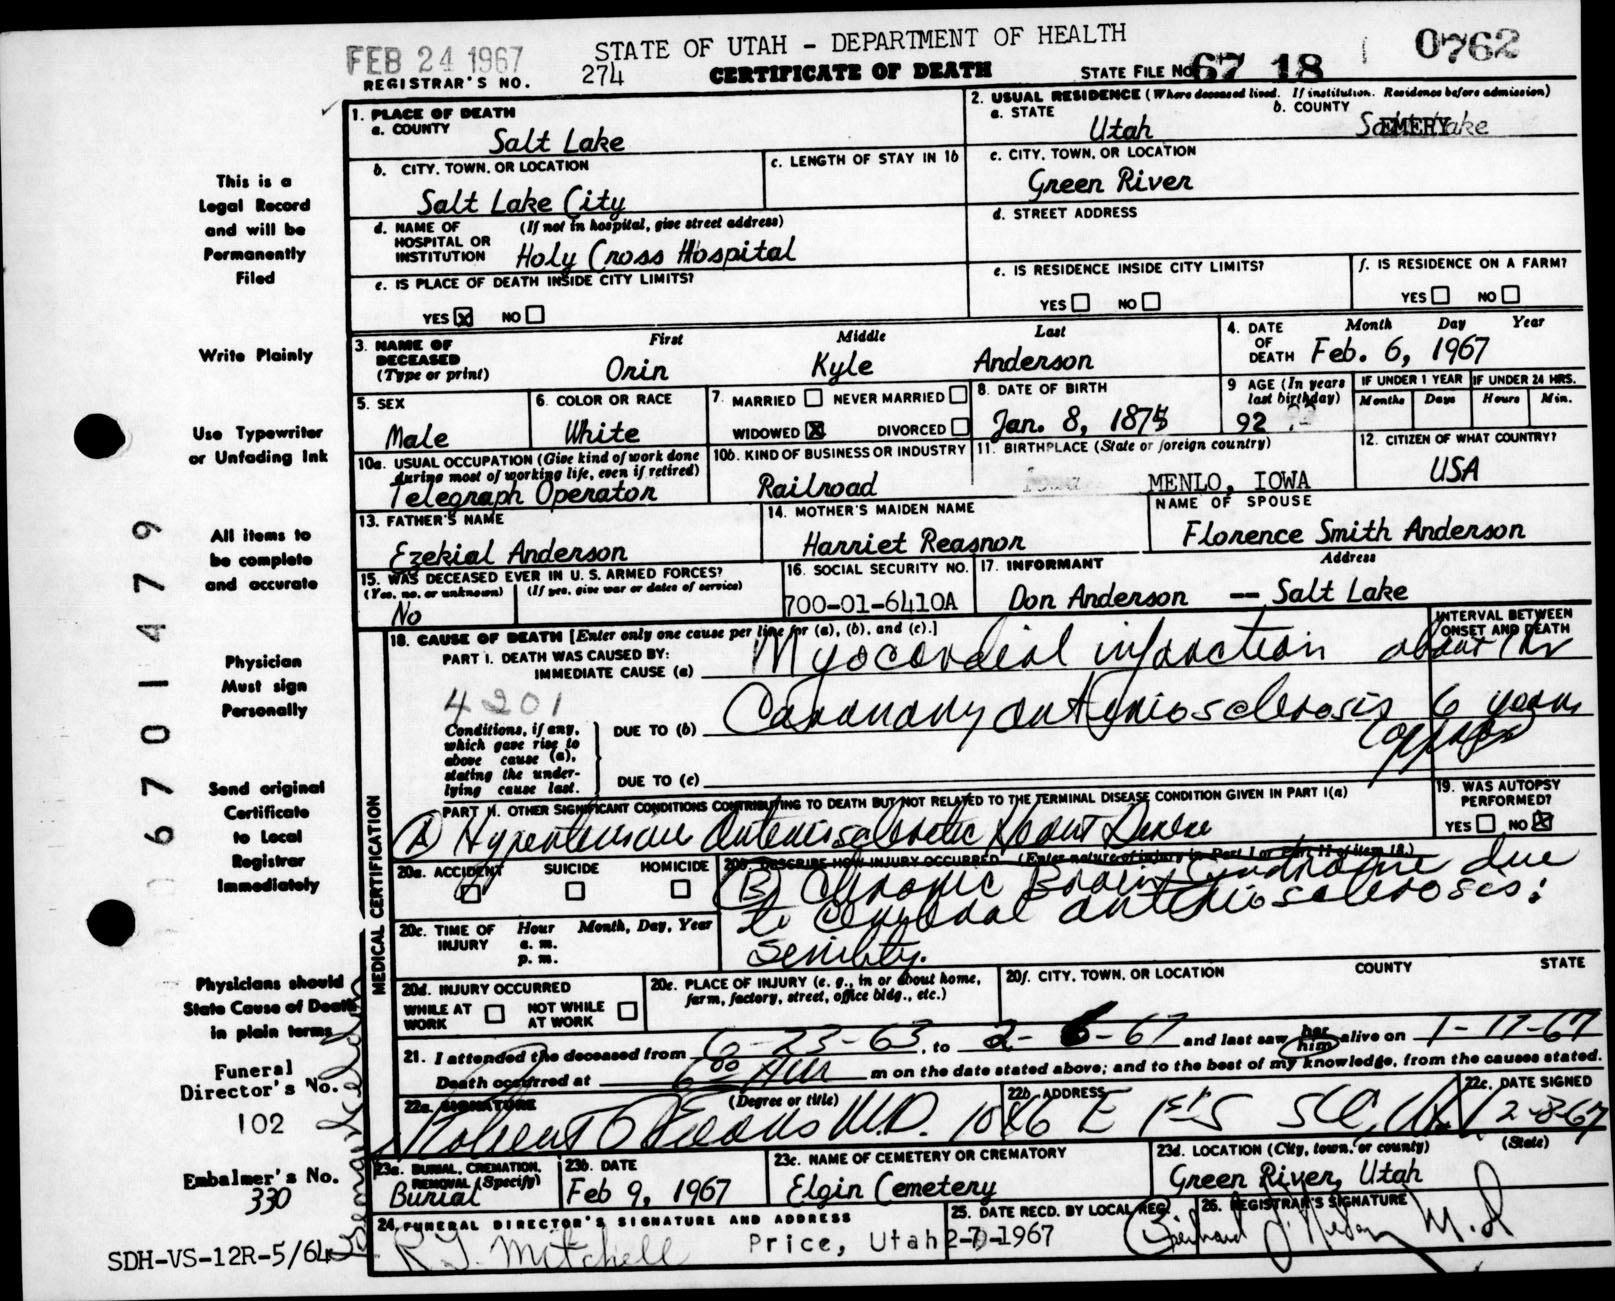 FEB 24 1967
STATE OF UTAH - DEPARTMENT OF HEALTH
0762
REGISTRAR'S NO. 274
CERTIFICATE OF DEATH
STATE FILE NO. 67 18
This is a
Legal Record
and will be
Permanently
Filed
Write Plainly
Use Typewriter
or Unfading Ink
All items to
be complete
and accurate
Physician
Must sign
Personally
Send original
Certificate
to Local
Registrar
Immediately
Physicians should
State Cause of Death
in plain terms
Funeral
Director's No.
102
Embalmer's No.
330
SDH-VS-12R-5/64
06701479
1. PLACE OF DEATH
a. COUNTY
Salt Lake
b. CITY, TOWN, OR LOCATION
Salt Lake City
c. LENGTH OF STAY IN 1b
d. NAME OF HOSPITAL OR INSTITUTION (If not in hospital, give street address)
Holy Cross Hospital
e. IS PLACE OF DEATH INSIDE CITY LIMITS?
YES X NO
2. USUAL RESIDENCE (Where deceased lived. If institution. Residence before admission)
a. STATE
Utah
b. COUNTY
Salt Lake EMERY
c. CITY, TOWN, OR LOCATION
Green River
d. STREET ADDRESS
e. IS RESIDENCE INSIDE CITY LIMITS?
YES NO
f. IS RESIDENCE ON A FARM?
YES NO
3. NAME OF DECEASED (Type or print)
First Middle Last
Orin Kyle Anderson
4. DATE OF DEATH Month Day Year
Feb. 6, 1967
5. SEX
Male
6. COLOR OR RACE
White
7. MARRIED NEVER MARRIED
WIDOWED X DIVORCED
8. DATE OF BIRTH
Jan. 8, 187
9 AGE (In years last birthday)
92
IF UNDER 1 YEAR
Months Days
IF UNDER 24 HRS.
Hours Min.
10a. USUAL OCCUPATION (Give kind of work done during most of working life, even if retired)
Telegraph Operator
10b. KIND OF BUSINESS OR INDUSTRY
Railroad
11. BIRTHPLACE (State or foreign country)
Iowa MENLO, IOWA
12. CITIZEN OF WHAT COUNTRY?
USA
13. FATHER'S NAME
Ezekial Anderson
14. MOTHER'S MAIDEN NAME
Harriet Reasnor
NAME OF SPOUSE
Florence Smith Anderson
15. WAS DECEASED EVER IN U. S. ARMED FORCES?
(Yes, no, or unknown) (If yes, give war or dates of service)
No
16. SOCIAL SECURITY NO.
700-01-6410A
17. INFORMANT Address
Don Anderson — Salt Lake
MEDICAL CERTIFICATION
18. CAUSE OF DEATH [Enter only one cause per line for (a), (b), and (c).]
INTERVAL BETWEEN ONSET AND DEATH
PART I. DEATH WAS CAUSED BY:
IMMEDIATE CAUSE (a) Myocardial infarction about 1 hr
4201
Conditions, if any, which gave rise to above cause (a), stating the underlying cause last.
DUE TO (b) Coronary arteriosclerosis 6 years
DUE TO (c)
PART II. OTHER SIGNIFICANT CONDITIONS CONTRIBUTING TO DEATH BUT NOT RELATED TO THE TERMINAL DISEASE CONDITION GIVEN IN PART I(a)
(A) Hypertensive Arteriosclerotic Heart Disease
19. WAS AUTOPSY PERFORMED?
YES NO X
20a. ACCIDENT SUICIDE HOMICIDE
20b. DESCRIBE HOW INJURY OCCURRED (Enter nature of injury in Part I or Part II of item 18.)
(B) Chronic Brain Syndrome due
to cerebral arteriosclerosis:
Senility.
20c. TIME OF INJURY Hour Month, Day, Year
a. m.
p. m.
20d. INJURY OCCURRED
WHILE AT WORK NOT WHILE AT WORK
20e. PLACE OF INJURY (e. g., in or about home, farm, factory, street, office bldg., etc.)
20f. CITY, TOWN, OR LOCATION COUNTY STATE
21. I attended the deceased from 6-23-63, to 2-6-67 and last saw her him alive on 1-17-67
Death occurred at 6 00 m on the date stated above; and to the best of my knowledge, from the causes stated.
22a. SIGNATURE (Degree or title)
Robert Evans M.D.
22b. ADDRESS
E 1st S SLC, Ut
22c. DATE SIGNED
2-8-67
23a. BURIAL, CREMATION, REMOVAL (Specify)
Burial
23b. DATE
Feb 9, 1967
23c. NAME OF CEMETERY OR CREMATORY
Elgin Cemetery
23d. LOCATION (City, town, or county) (State)
Green River, Utah
24. FUNERAL DIRECTOR'S SIGNATURE AND ADDRESS
R. J. Mitchell Price, Utah
25. DATE RECD. BY LOCAL REG.
2-7-1967
26. REGISTRAR'S SIGNATURE
M.D.